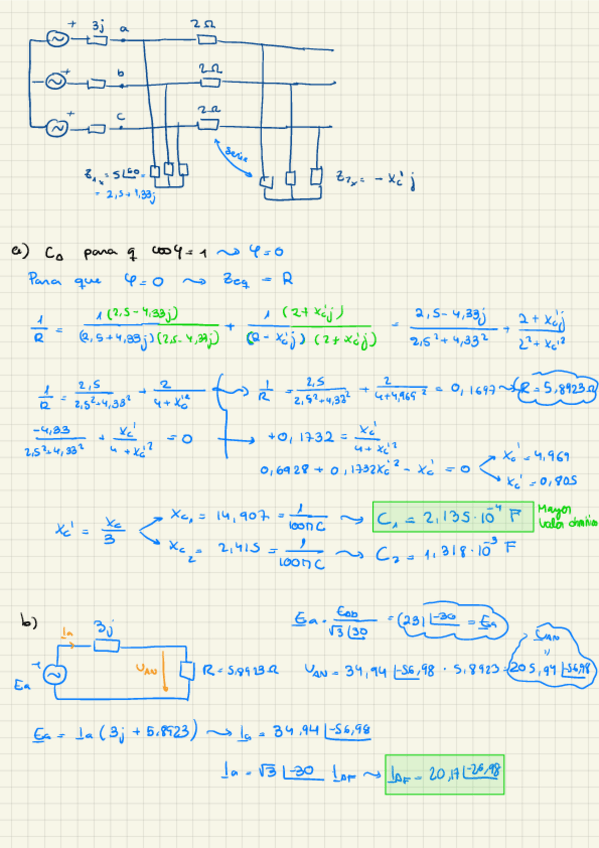 + 3j a 2Ω
+ b 2Ω
+ c 2Ω
serie
= 5∠60 =
= 2,5 + 4,33j
= - Xc' j
a) C_Δ para q cosφ = 1 ⤳ φ = 0
Para que φ = 0 ⤳ Zeq = R
1/R = 1 (2,5-4,33j) / (2,5+4,33j)(2,5-4,33j) + 1 (2+Xc'j) / (2-Xc'j) (2+Xc'j) = 2,5-4,33j / 2,5²+4,33² + 2+Xc'j / 2²+Xc'²
1/R = 2,5 / 2,5²+4,33² + 2 / 4+Xc'² → 1/R = 2,5 / 2,5²+4,33² + 2 / 4+4,969² = 0,1697 ⤳ R = 5,8923Ω
-4,33 / 2,5²+4,33² + Xc' / 4+Xc'² = 0 → +0,1732 = Xc' / 4+Xc'²
0,6928 + 0,1732Xc'² - Xc' = 0
Xc' = 4,969
Xc' = 0,805
Xc' = Xc/3
Xc₁ = 14,907 = 1/100πC ⤳ C₁ = 2,135·10⁻⁴ F
Mayor valor
Xc₂ = 2,415 = 1/100πC ⤳ C₂ = 1,318·10⁻³ F
b)
Ia 3j
+
Ea
U_AN
R = 5,8923Ω
Ea = /√3∠30 = (231∠-30 = Ea
U_AN = 34,94∠-56,98 · 5,8923 = 205,94∠-56,98
Ea = Ia (3j + 5,8923) ⤳ Ia = 34,94∠-56,98
Ia = √3∠-30 I_ΔF ⤳ I_ΔF = 20,17∠-26,98